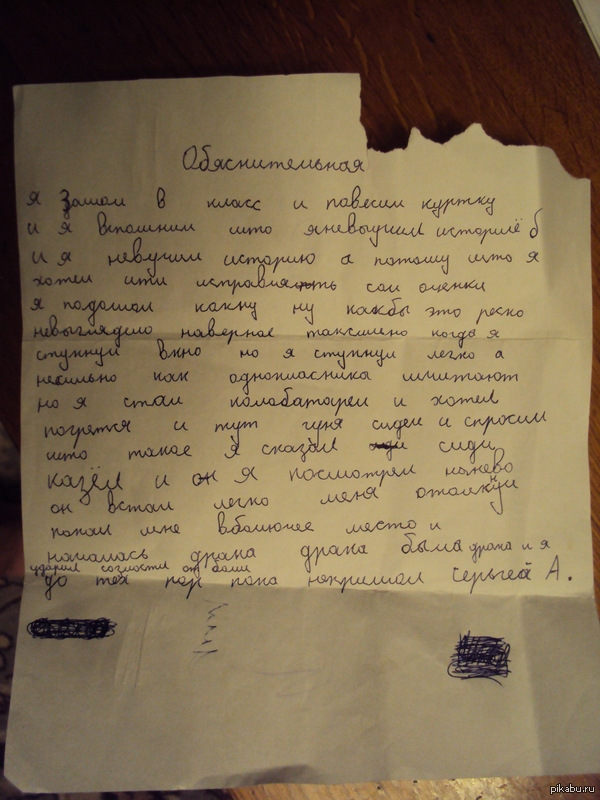 Обяснительная
я зашол в класс и повесил куртку
и я вспомнил што яневыучил историё б
и я невучил историю а потому што я
хотел ити исправлять сои оценки
я подошол какну ну какбы это реско
невыглядело наверное таксшено когда я
стукнул вкно но я стукнул легко а
несильно как однокласника щитают
но я стал колабатареи и хотел
погрется и тут гуня сидел и спросил
што такое я сказал сиди
казёл и он я посмотрел нанево
он встал легко меня отолкнул
попал мне вболющее место и
началась драка драка была драка и я
ударил созлости от боли
до тех пор пока ненришол сергей А.
pikabu.ru